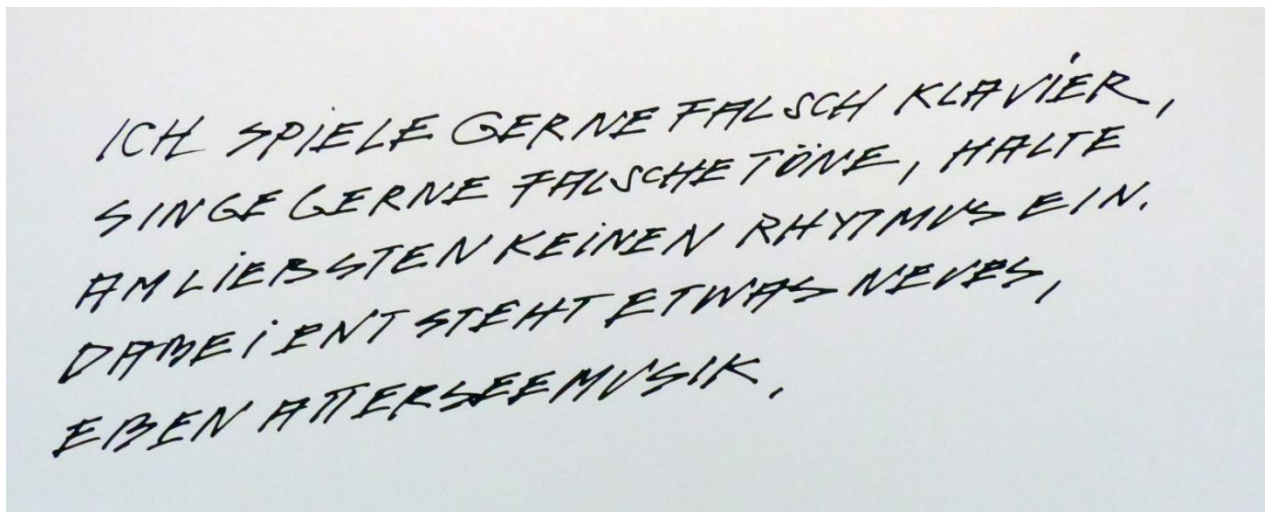 ICH SPIELE GERNE FALSCH KLAVIER,
SINGE GERNE FALSCHE TÖNE, HALTE
AM LIEBSTEN KEINEN RHYTMUS EIN.
DABEI ENTSTEHT ETWAS NEUES,
EBEN ATTERSEEMUSIK.